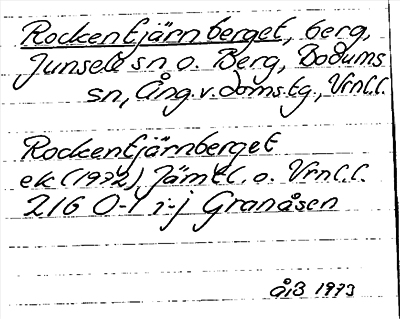 Rockentjärnberget, berg,
Junsele sn o. Berg, Bodums
sn, Ång.v.doms.tg., Vrnl.l.
Rockentjärnberget
ek (1972), Jämtl. o. Vrnl.l.
21G 0-1 i-j Granåsen
ÅiB 1973